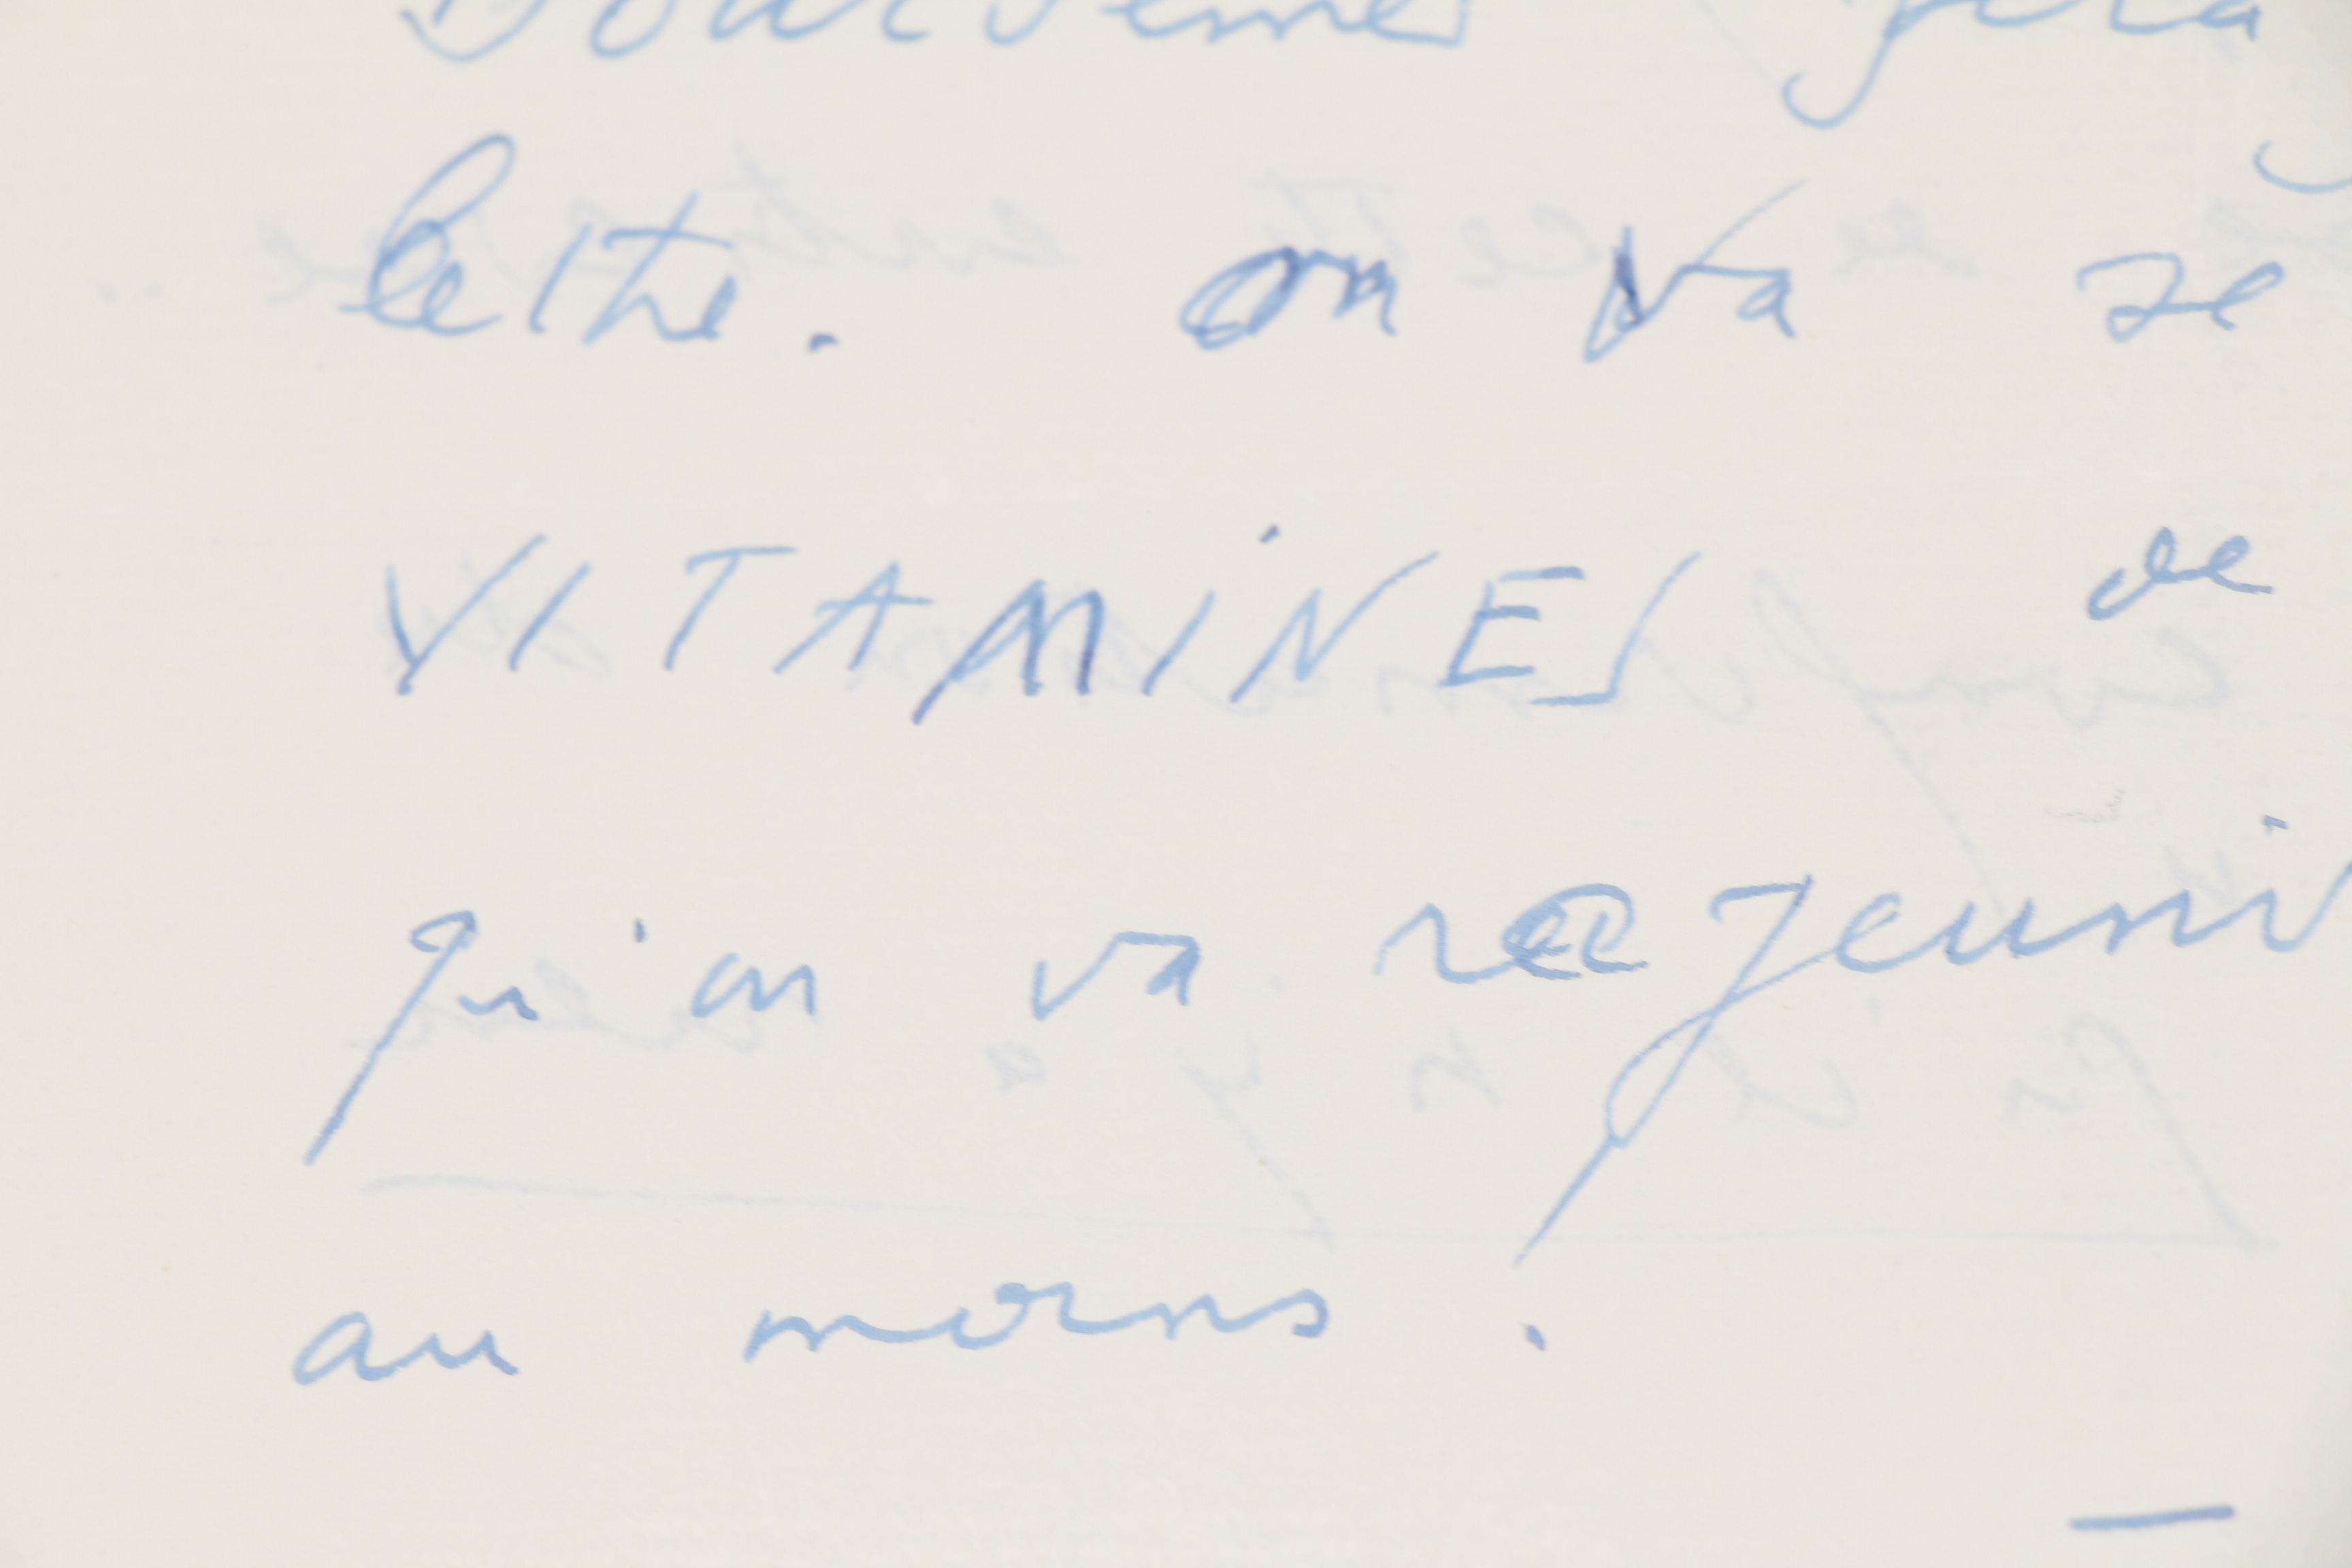 lettre. on va se
VITAMINES de
qu'on va rejeuni
au moins.